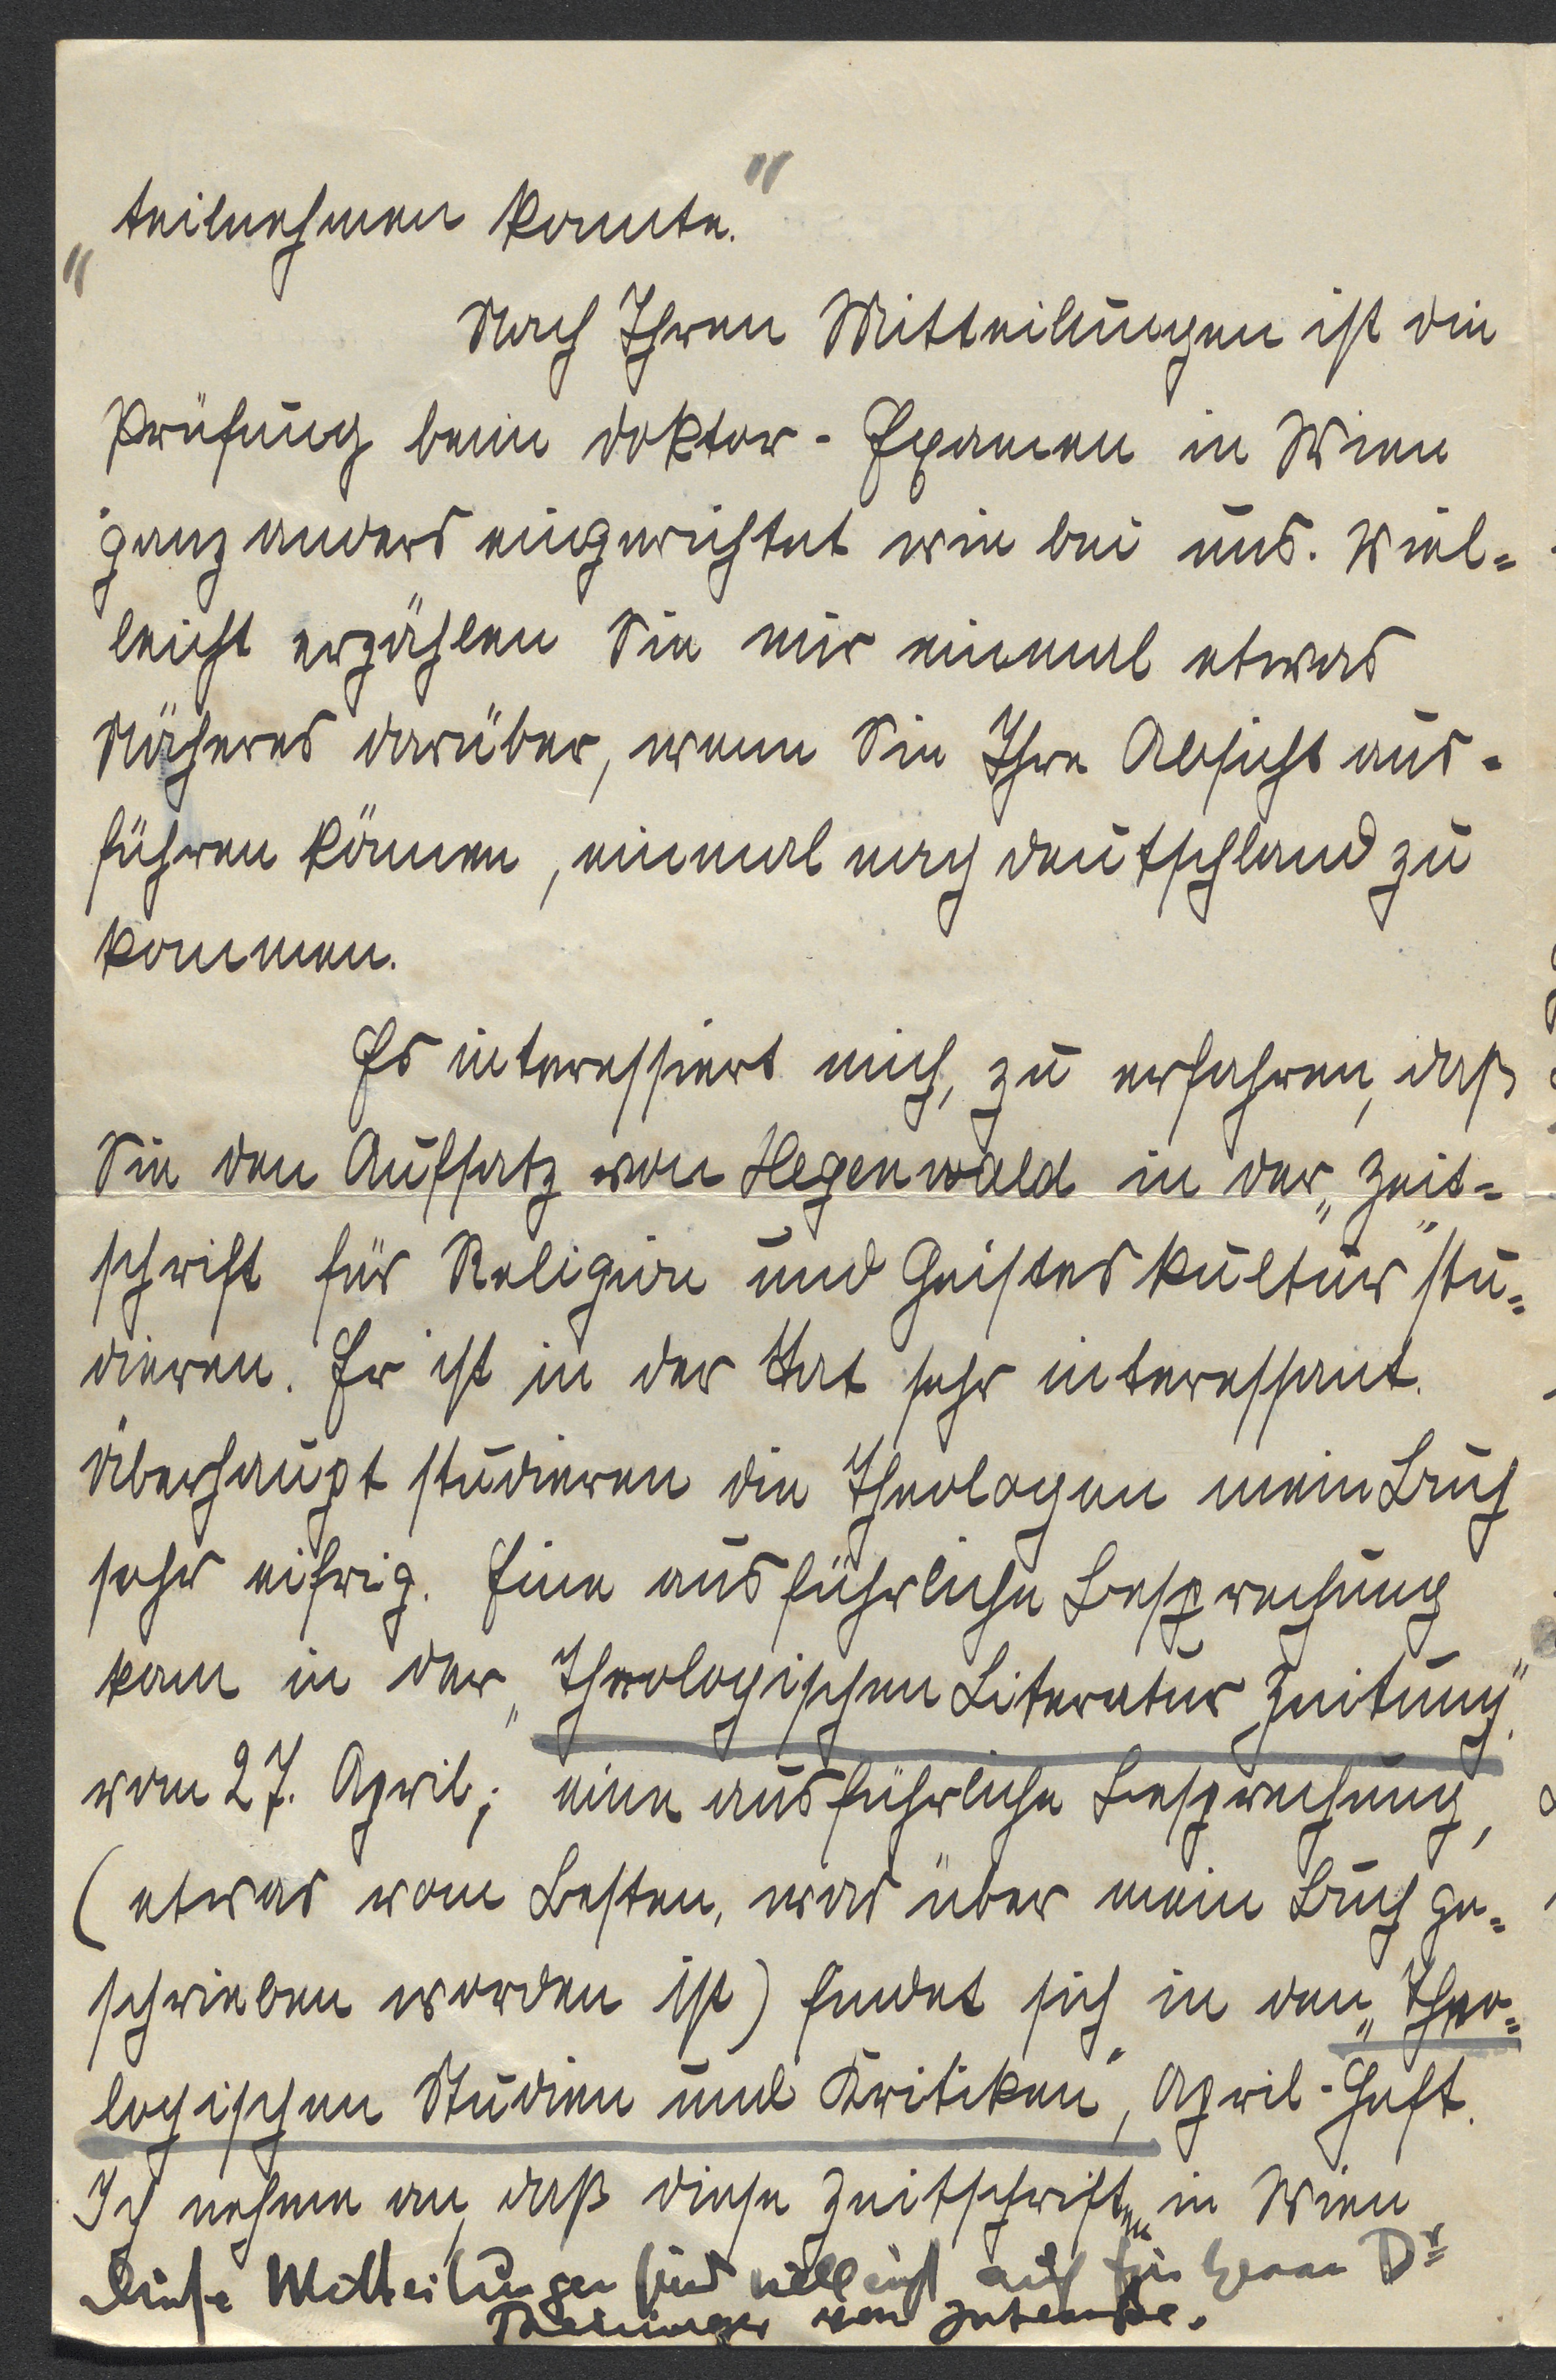 teilnehmen konnte."
"
Nach Ihren Mitteilungen ist die
Prüfung beim Doktor-Examen in Wien
ganz anders eingerichtet wie bei uns. Viel=
leicht erzählen Sie mir einmal etwas
Näheres darüber, wenn Sie Ihre Absicht aus-
führen können, einmal nach Deutschland zu
kommen.
Es interessiert mich, zu erfahren, daß
Sie den Aufsatz von Hegenwald in der „Zeit=
schrift für Religion und Geisteskultur" stu=
dieren. Er ist in der Tat sehr interessant.
Überhaupt studieren die Theologen mein Buch
sehr eifrig. Eine ausführliche Besprechung
kam in der „Theologischen Literatur Zeitung"
vom 27. April; eine ausführliche Besprechung,
(etwas vom Besten, was über mein Buch ge=
schrieben worden ist) findet sich in den „Theo=
logischen Studien und Kritiken", April-Heft.
Ich nehme an, daß diese Zeitschriften in Wien
Diese Mitteilungen sind vielleicht auch für Herrn Dr
von Interesse.